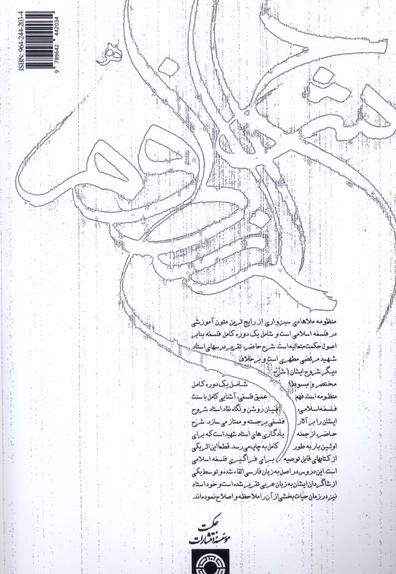 ISBN: 964-244-203-4
9 789642 442034
منظومه ملاهادی سبزواری از رایج ترین متون آموزشی
در فلسفه اسلامی است و شامل یک دوره کامل فلسفه بنابر
اصول حکمت متعالیه است. شرح حاضر، تقریر درسهای استاد
شهید مرتضی مطهری است و بر خلاف
دیگر شروح ایشان (شرح
مختصر و مبسوط) شامل یک دوره کامل
منظومه است. فهم عمیق فلسفی، آشنایی کامل با سنت
فلسفه اسلامی، بیان روشن و نگاه نقاد استاد شروح
ایشان را بر آثار فلسفی برجسته و ممتاز می سازد. شرح
حاضر، از جمله یادگاری های استاد شهید است که برای
اولین بار به طور کامل به چاپ می رسد. قطعا این اثر یکی
از کتابهای قابل توصیه برای فراگیری فلسفه اسلامی
است. این دروس در اصل به زبان فارسی القاء شده و توسط یکی
از شاگردان ایشان به زبان عربی تقریر شده است و خود استاد
نیز در زمان حیات بخشی از آن را ملاحظه و اصلاح نموده اند.
حکمت
موسسه انتشارات